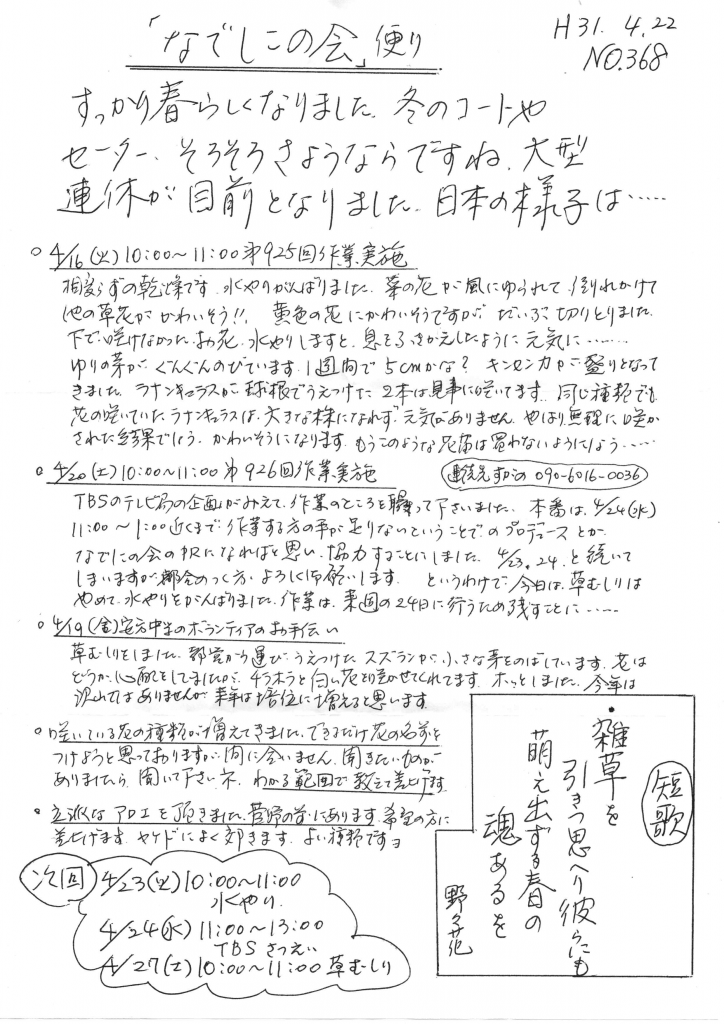 「なでしこの会」便り
H31.4.22
NO.368
すっかり春らしくなりました。冬のコートや
セーター、そろそろさようならですね。大型
連休が目前となりました。日本の様子は……
○4/16(火)10:00～11:00 第925回作業実施
相変らずの乾燥です。水やりがんばりました。菜の花が風にゆられて、倒れかけて
他の草花がかわいそう!!。黄色の花にかわいそうですが、だいぶ切りとりました。
下で咲けなかったお花、水やりしますと、息をふきかえしたように元気に……
ゆりの芽がぐんぐんのびています。1週間で5cmかな? キンセンカが盛りとなって
きました。ラナンキュラスが球根でうえつけた2本は見事に咲いてます。同じ種類でも
花の咲いていたラナンキュラスは、大きな株になれず元気がありません。やはり無理に咲か
された結果でしょう。かわいそうになります。もうこのような花苗は買わないようにしよう……
○4/20(土)10:00～11:00 第926回作業実施
連絡先すがの 090-6016-0036
TBSのテレビ局の企画がみえて、作業のところを撮って下さいました。本番は、4/24(水)
11:00～1:00近くまで、作業する方の手が足りないということでのプロデュースとか。
なでしこの会のPRになればと思い、協力することにしました。4/23。24。と続いて
しまいますが都合のつく方、よろしくお願いします。というわけで、今日は、草むしりは
やめて、水やりをがんばりました。作業は、来週の24日に行うため残すことに……
○4/19(金)安方中生のボランティアのお手伝い
草むしりをしました。都営から運び、うえつけたスズランが小さな芽をのばしています。花は
どうか、心配をしてましたが、チラホラと白い花を咲かせてくれてます。ホッとしました。今年は
沢山ではありませんが来年は倍位に増えると思います
○咲いている花の種類が増えてきました。できるだけ花の名前を
つけようと思っておりますが、間に合いません。聞きたいものが
ありましたら、聞いて下さいネ。わかる範囲で教えて差上ます
○立派なアロエを頂きました。菅野の前にあります。希望の方に
差上げます。ヤケドによく効きます。よい種類ですヨ
短歌
・雑草を
引きつつ思へり彼らにも
萌え出ずる春の
魂あるを
野々花
次回
4/23(火)10:00～11:00
水やり
4/24(水)11:00～13:00
TBSさつえい
4/27(土)10:00～11:00 草むしり